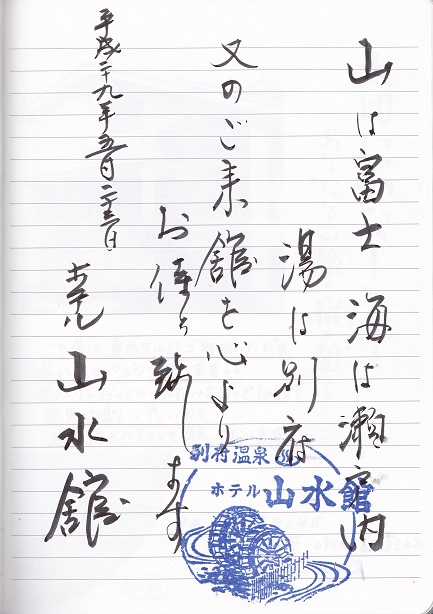 山は富士 海は瀬戸内
湯は別府
又のご来館を心より
お待ち致します
平成二十九年五月二十三日
ホテル 山水館
別府温泉
ホテル 山水館